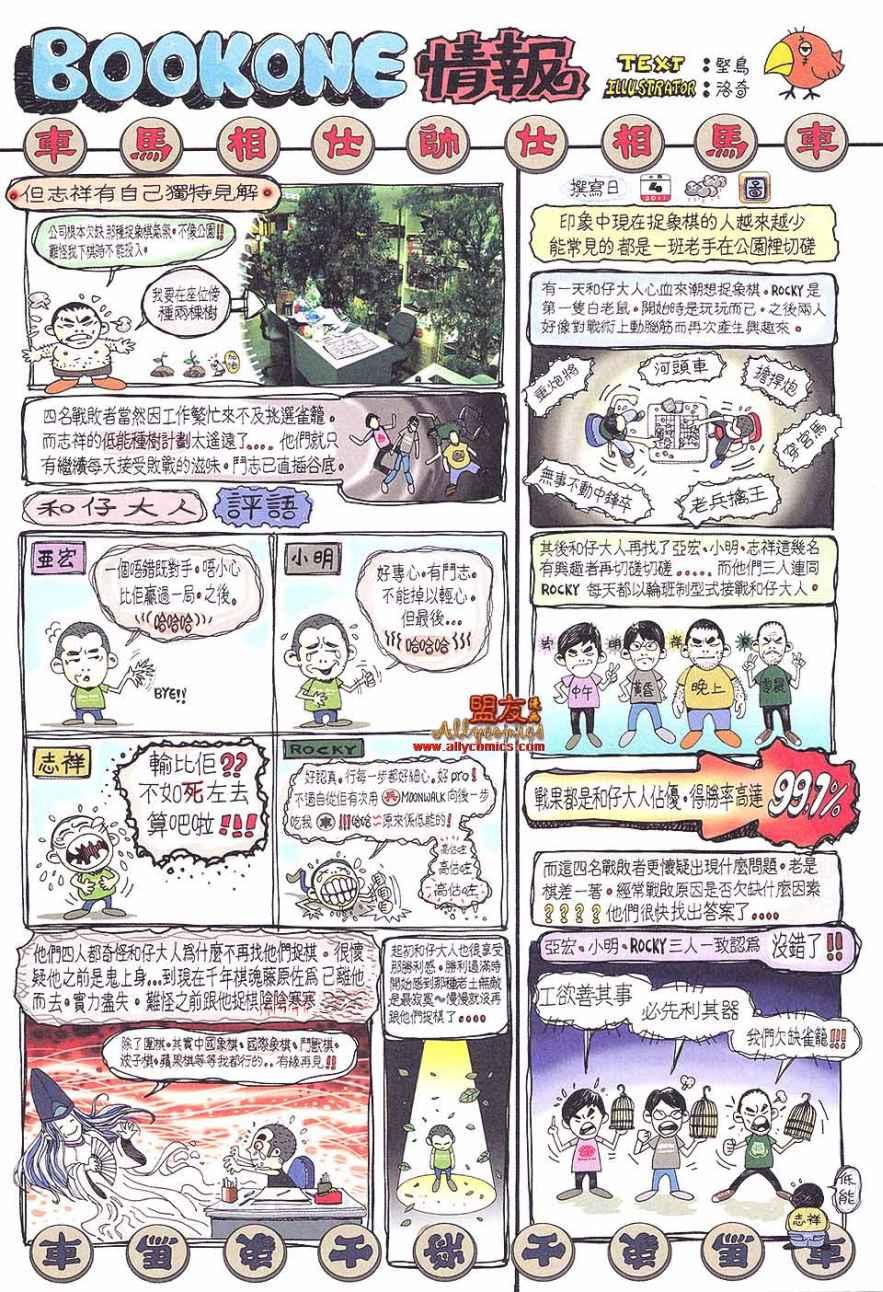 BOOKONE 情報
TEXT：堅鳥
ILLUSTRATOR：洛奇
車 馬 相 仕 帥 仕 相 馬 車
撰寫日
4
2011
圖
印象中現在捉象棋的人越來越少
能常見的都是一班老手在公園裡切磋
有一天和仔大人心血來潮想捉象棋。ROCKY是
第一隻白老鼠。開始時是玩玩而已。之後兩人
好像對戰術上動腦筋而再次產生興趣來。
重炮將
河頭車
擔捍炮
穿宮馬
無事不動中鋒卒
老兵擒王
其後和仔大人再找了亞宏、小明、志祥這幾名
有興趣者再切磋切磋.....而他們三人連同
ROCKY 每天都以輪班制型式接戰和仔大人。
宏 明 祥
中午 黃昏 晚上 凌晨
戰果都是和仔大人佔優。得勝率高達 99.1%
而這四名戰敗者更懷疑出現什麼問題。老是
棋差一著。經常戰敗原因是否欠缺什麼因素
????他們很快找出答案了....
亞宏、小明、ROCKY三人一致認為 沒錯了!!
工欲善其事
必先利其器
我們欠缺雀籠!!!
低能
志祥
但志祥有自己獨特見解
公司根本欠缺那種捉象棋氣氛。不像公園!!
難怪我下棋時不能投入。
我要在座位傍
種兩棵樹
加油
四名戰敗者當然因工作繁忙來不及挑選雀籠。
而志祥的低能種樹計劃太遙遠了....他們就只
有繼續每天接受敗戰的滋味。鬥志已直插谷底。
和仔大人 評語
亞宏
一個唔錯既對手。唔小心
比佢贏過一局。之後。
哈哈哈
BYE!!
小明
好專心。有鬥志。
不能掉以輕心。
但最後...
哈哈哈
志祥
輸比佢??
不如死左去
算吧啦!!!
ROCKY
好認真。行每一步都好細心。好pro!
不過自從佢有次用 兵 MOONWALK 向後一步
吃我 車!!!哈哈~原來係低能的!
高估咗
高估咗
高估咗
他們四人都奇怪和仔大人爲什麼不再找他們捉棋。很懷
疑他之前是鬼上身...到現在千年棋魂藤原佐爲已離他
而去。實力盡失。難怪之前跟他捉棋陰陰寒寒
除了圍棋。其實中國象棋、國際象棋、鬥獸棋。
波子棋。蘋果棋等等我都行的..有緣再見!!
起初和仔大人也很享受
那勝利感。勝利過滿時
開始感到那種老土無敵
是最寂寞~慢慢就沒再
跟他們捉棋了....
盟友
Allycomics
www.allycomics.com
車 馬 象 士 將 士 象 馬 車